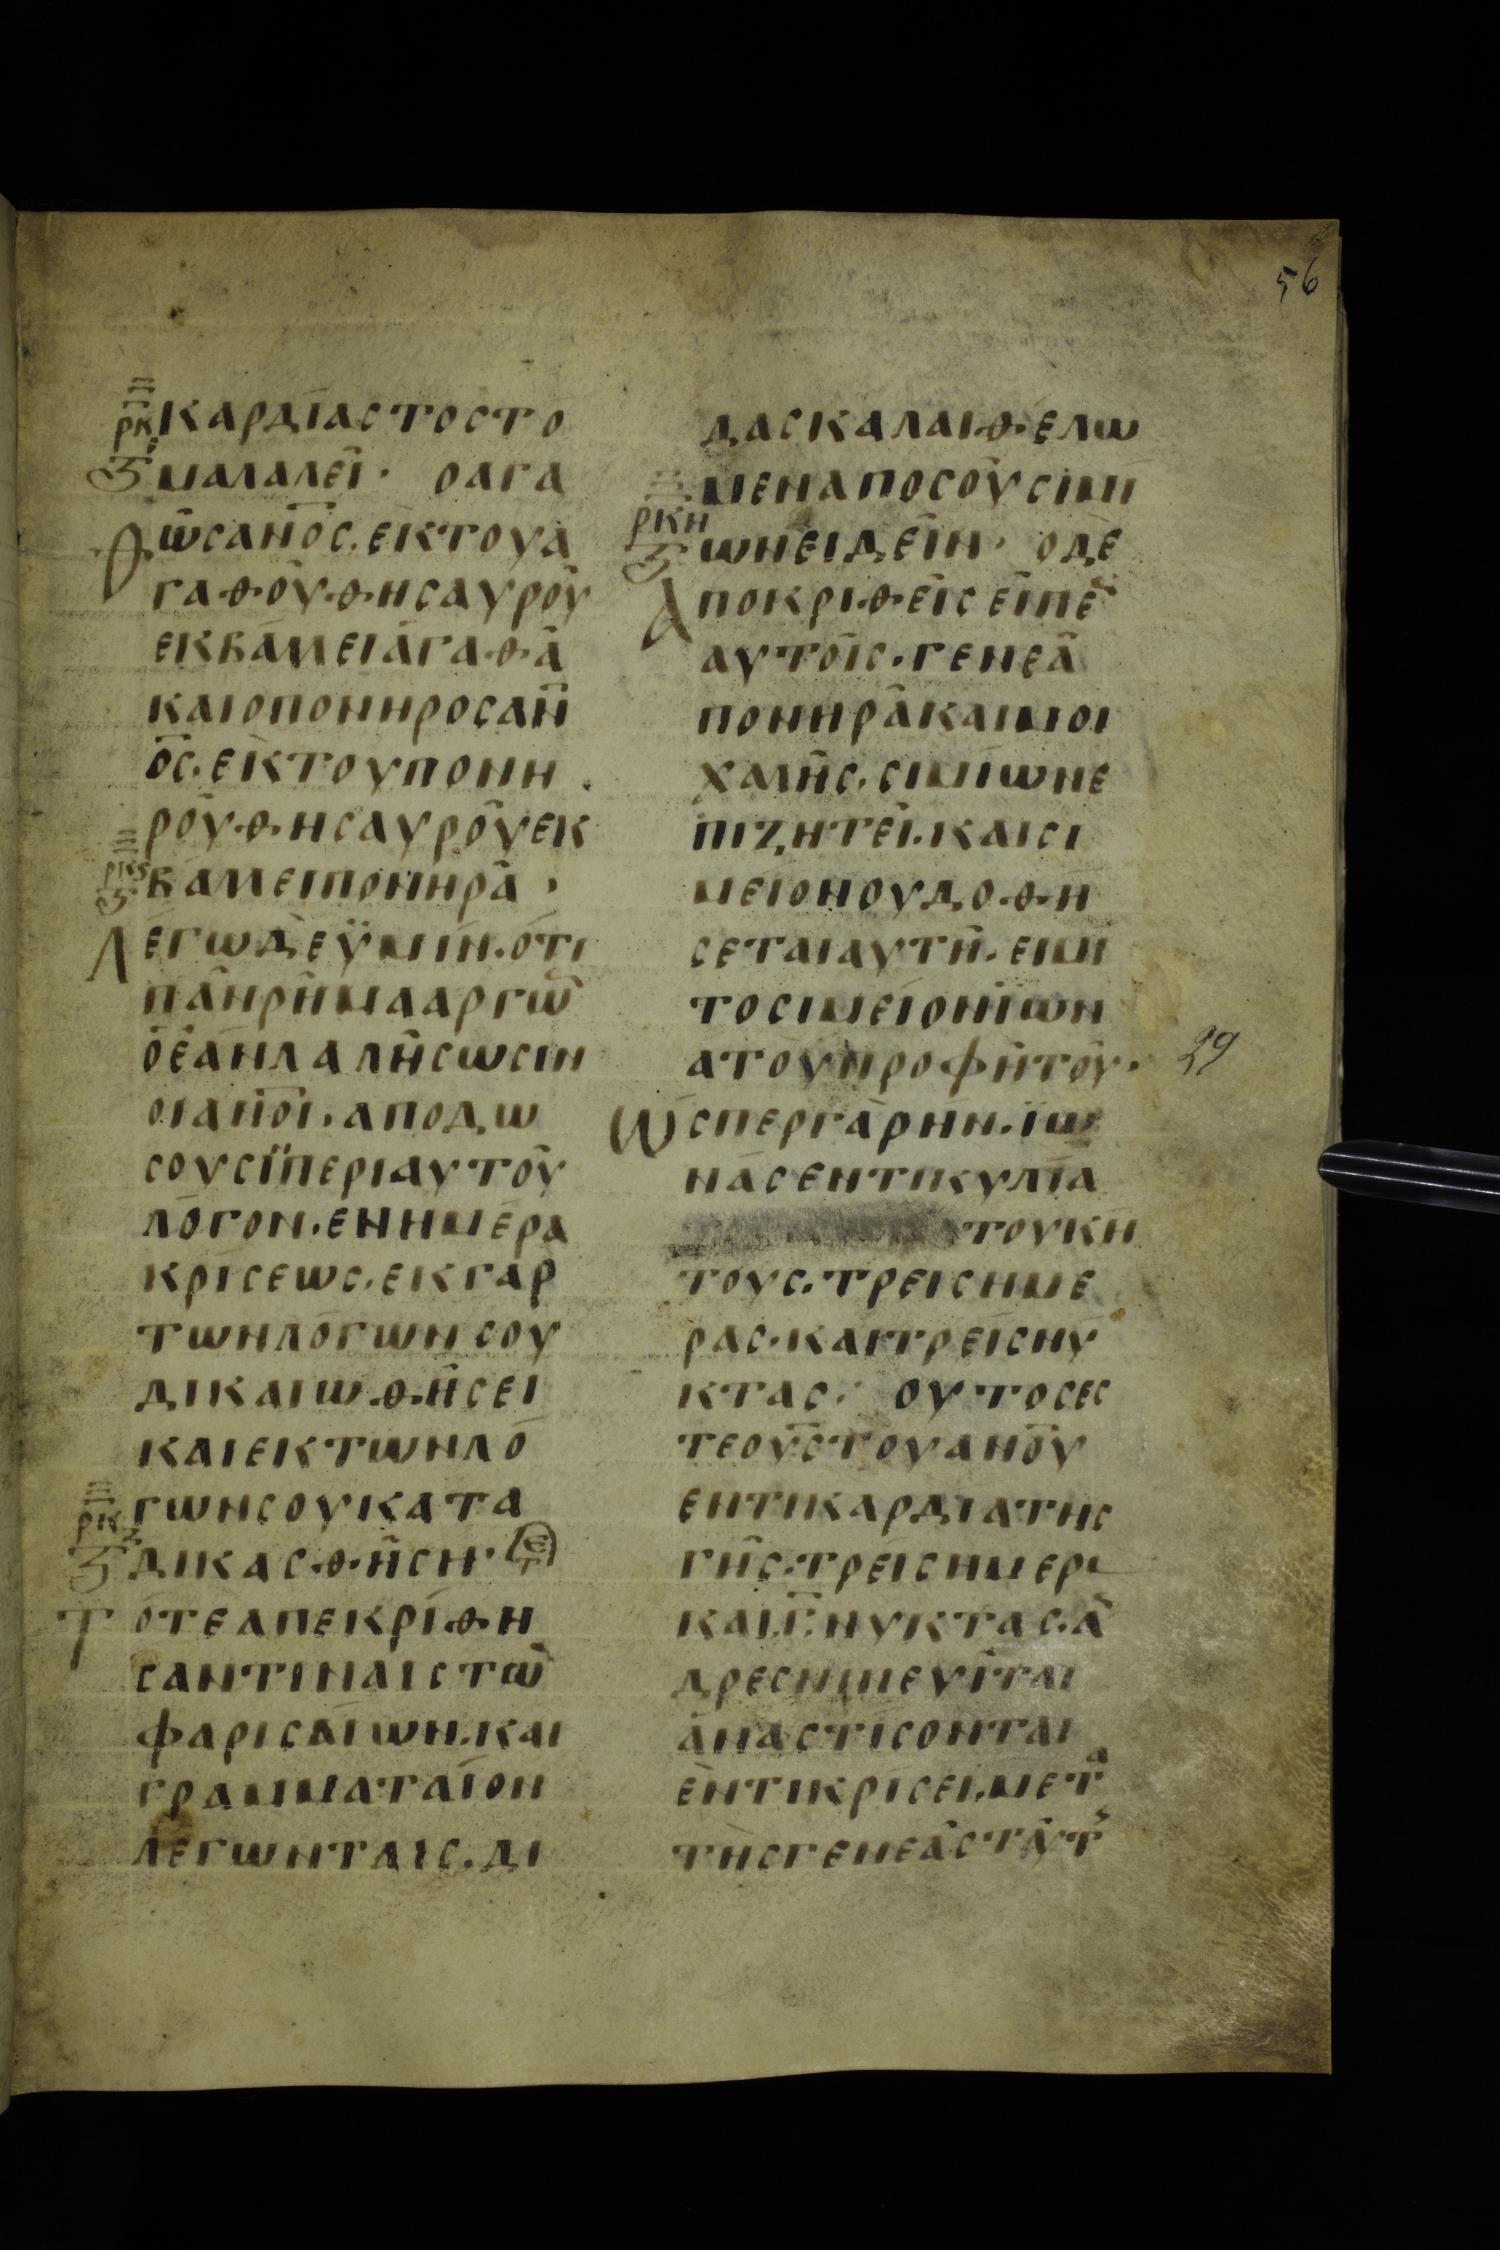 56
ΚΑΡΔΙΑΣΤΟΣΤΟ
ΜΑΛΑΛΕΙ· ΟΑΓΑ
ΘΩΣΑΝΟΣ.ΕΚΤΟΥΑ
ΓΑΘΟΥΘΗΣΑΥΡΟΥ
ΕΚΒΑΛΛΕΙΑΓΑΘΑ
ΚΑΙΟΠΟΝΗΡΟΣΑΝ
ΟΣ.ΕΚΤΟΥΠΟΝΗ
ΡΟΥΘΗΣΑΥΡΟΥΕΚ
ΒΑΛΛΕΙΠΟΝΗΡΑ·
ΛΕΓΩΔΕΫΜΙΝ.ΟΤΙ
ΠΑΝΡΗΜΑΑΡΓΩ
ΟΕΑΝΛΑΛΗΣΩΣΙΝ
ΟΙΑΝΟΙ.ΑΠΟΔΩ
ΣΟΥΣΪΠΕΡΙΑΥΤΟΥ
ΛΟΓΟΝ.ΕΝΗΜΕΡΑ
ΚΡΙΣΕΩΣ.ΕΚΓΑΡ
ΤΩΝΛΟΓΩΝΣΟΥ
ΔΙΚΑΙΩΘΗΣΕΙ
ΚΑΙΕΚΤΩΝΛΟ
ΓΩΝΣΟΥΚΑΤΑ
ΔΙΚΑΣΘΗΣΗ·
ΤΟΤΕΑΠΕΚΡΙΘΗ
ΣΑΝΤΙΝΑΙΣΤΩ
ΦΑΡΙΣΑΙΩΝ.ΚΑΙ
ΓΡΑΜΜΑΤΑΙΟΝ
ΛΕΓΩΝΤΑΙΣ.ΔΙ
ΔΑΣΚΑΛΑΙΘΕΛΩ
ΜΕΝΑΠΟΣΟΥΣΙΜΙ
ΩΝΕΙΔΕΙΝ· ΟΔΕ
ΑΠΟΚΡΙΘΕΙΣΕΙΠΕ
ΑΥΤΟΙΣ.ΓΕΝΕΑ
ΠΟΝΗΡΑΚΑΙΜΟΙ
ΧΑΛΗΣ.ΣΙΜΙΩΝΕ
ΠΙΖΗΤΕΙ.ΚΑΙΣΙ
ΜΕΙΟΝΟΥΔΟΘΗ
ΣΕΤΑΙΑΥΤΗ.ΕΙΜΗ
ΤΟΣΙΜΕΙΟΝΪΩΝ
ΑΤΟΥΠΡΟΦΗΤΟΥ·
29
ΩΣΠΕΡΓΑΡΗΝ.ΪΩ
ΝΑΣΕΝΤΙΚΥΛΙΑ
ΤΟΥΚΗ
ΤΟΥΣ.ΤΡΕΙΣΗΜΕ
ΡΑΣ·ΚΑΙΤΡΕΙΣΝΥ
ΚΤΑΣ· ΟΥΤΟΣΕΣ
ΤΕΟΥΣΤΟΥΑΝΟΥ
ΕΝΤΗΚΑΡΔΙΑΤΗΣ
ΓΗΣ.ΤΡΕΙΣΗΜΕΡ
ΚΑΙ.Γ.ΝΥΚΤΑΣ.Α
ΔΡΕΣΝΙΝΕΥΙΤΑΙ
ΑΝΑΣΤΙΣΟΝΤΑΙ
ΕΝΤΙΚΡΙΣΕΙ.ΜΕΤΑ
ΤΗΣΓΕΝΕΑΣΤΑΥΤ